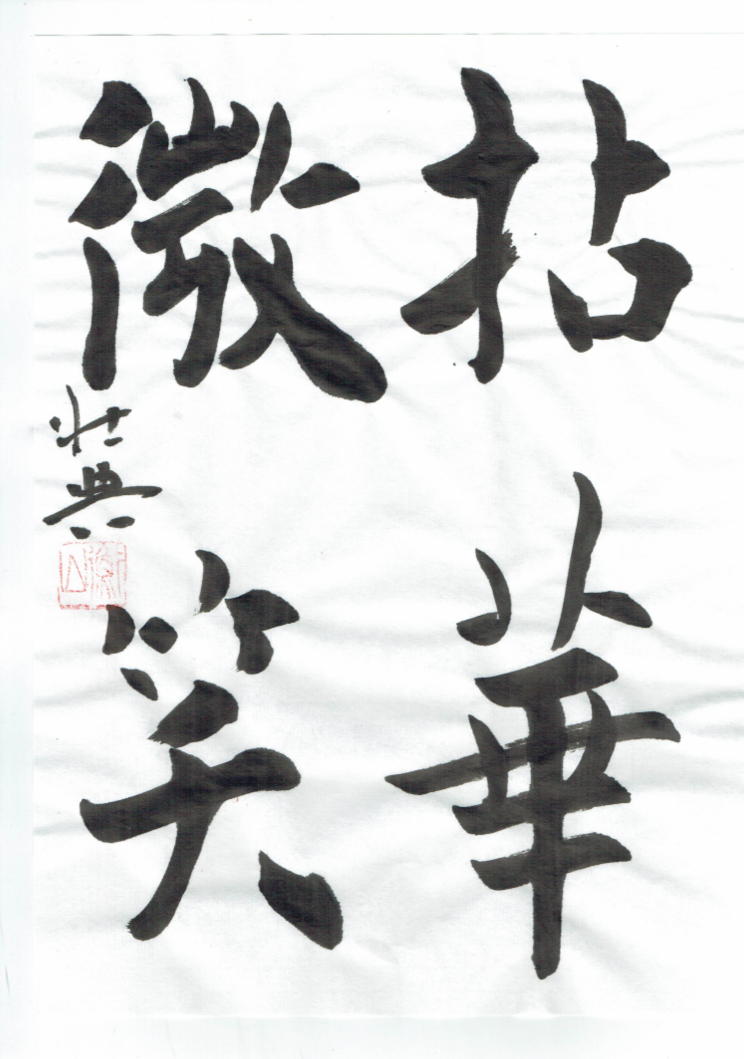 拈華
微笑
壮典